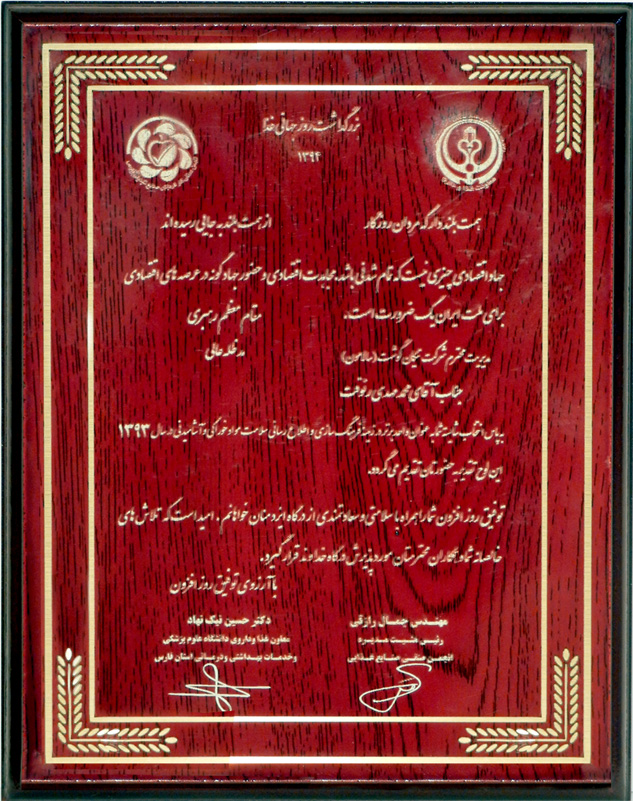 بزرگداشت روز جهانی غذا
۱۳۹۴
همت بلند دار که مردان روزگار از همت بلند به جایی رسیده اند
جهاد اقتصادی چیزی نیست که تمام شدنی باشد، مجاهدت اقتصادی و حضور جهادگونه در عرصه های اقتصادی
برای ملت ایران یک ضرورت است. مقام معظم رهبری
مدظله عالی
مدیریت محترم شرکت نیکان گوشت (سالامون)
جناب آقای محمد مهدی رئوفت
به پاس انتخاب شایسته شما به عنوان واحد برتر در زمینه فرهنگ سازی و اطلاع رسانی سلامت مواد خوراکی و آشامیدنی در سال ۱۳۹۳
این لوح تقدیر به حضورتان تقدیم می گردد.
توفیق روز افزون شما را همراه با سلامتی و سعادتمندی از درگاه ایزد منان خواهانم. امید است که تلاش های
خالصانه شما و همکاران محترمتان مورد پذیرش درگاه خداوند قرار گیرد.
با آرزوی توفیق روز افزون
مهندس جمال رازقی دکتر حسین نیک نهاد
رئیس هیئت مدیره معاون غذا و داروی دانشگاه علوم پزشکی
انجمن صنایع غذایی وخدمات بهداشتی ودرمانی استان فارس